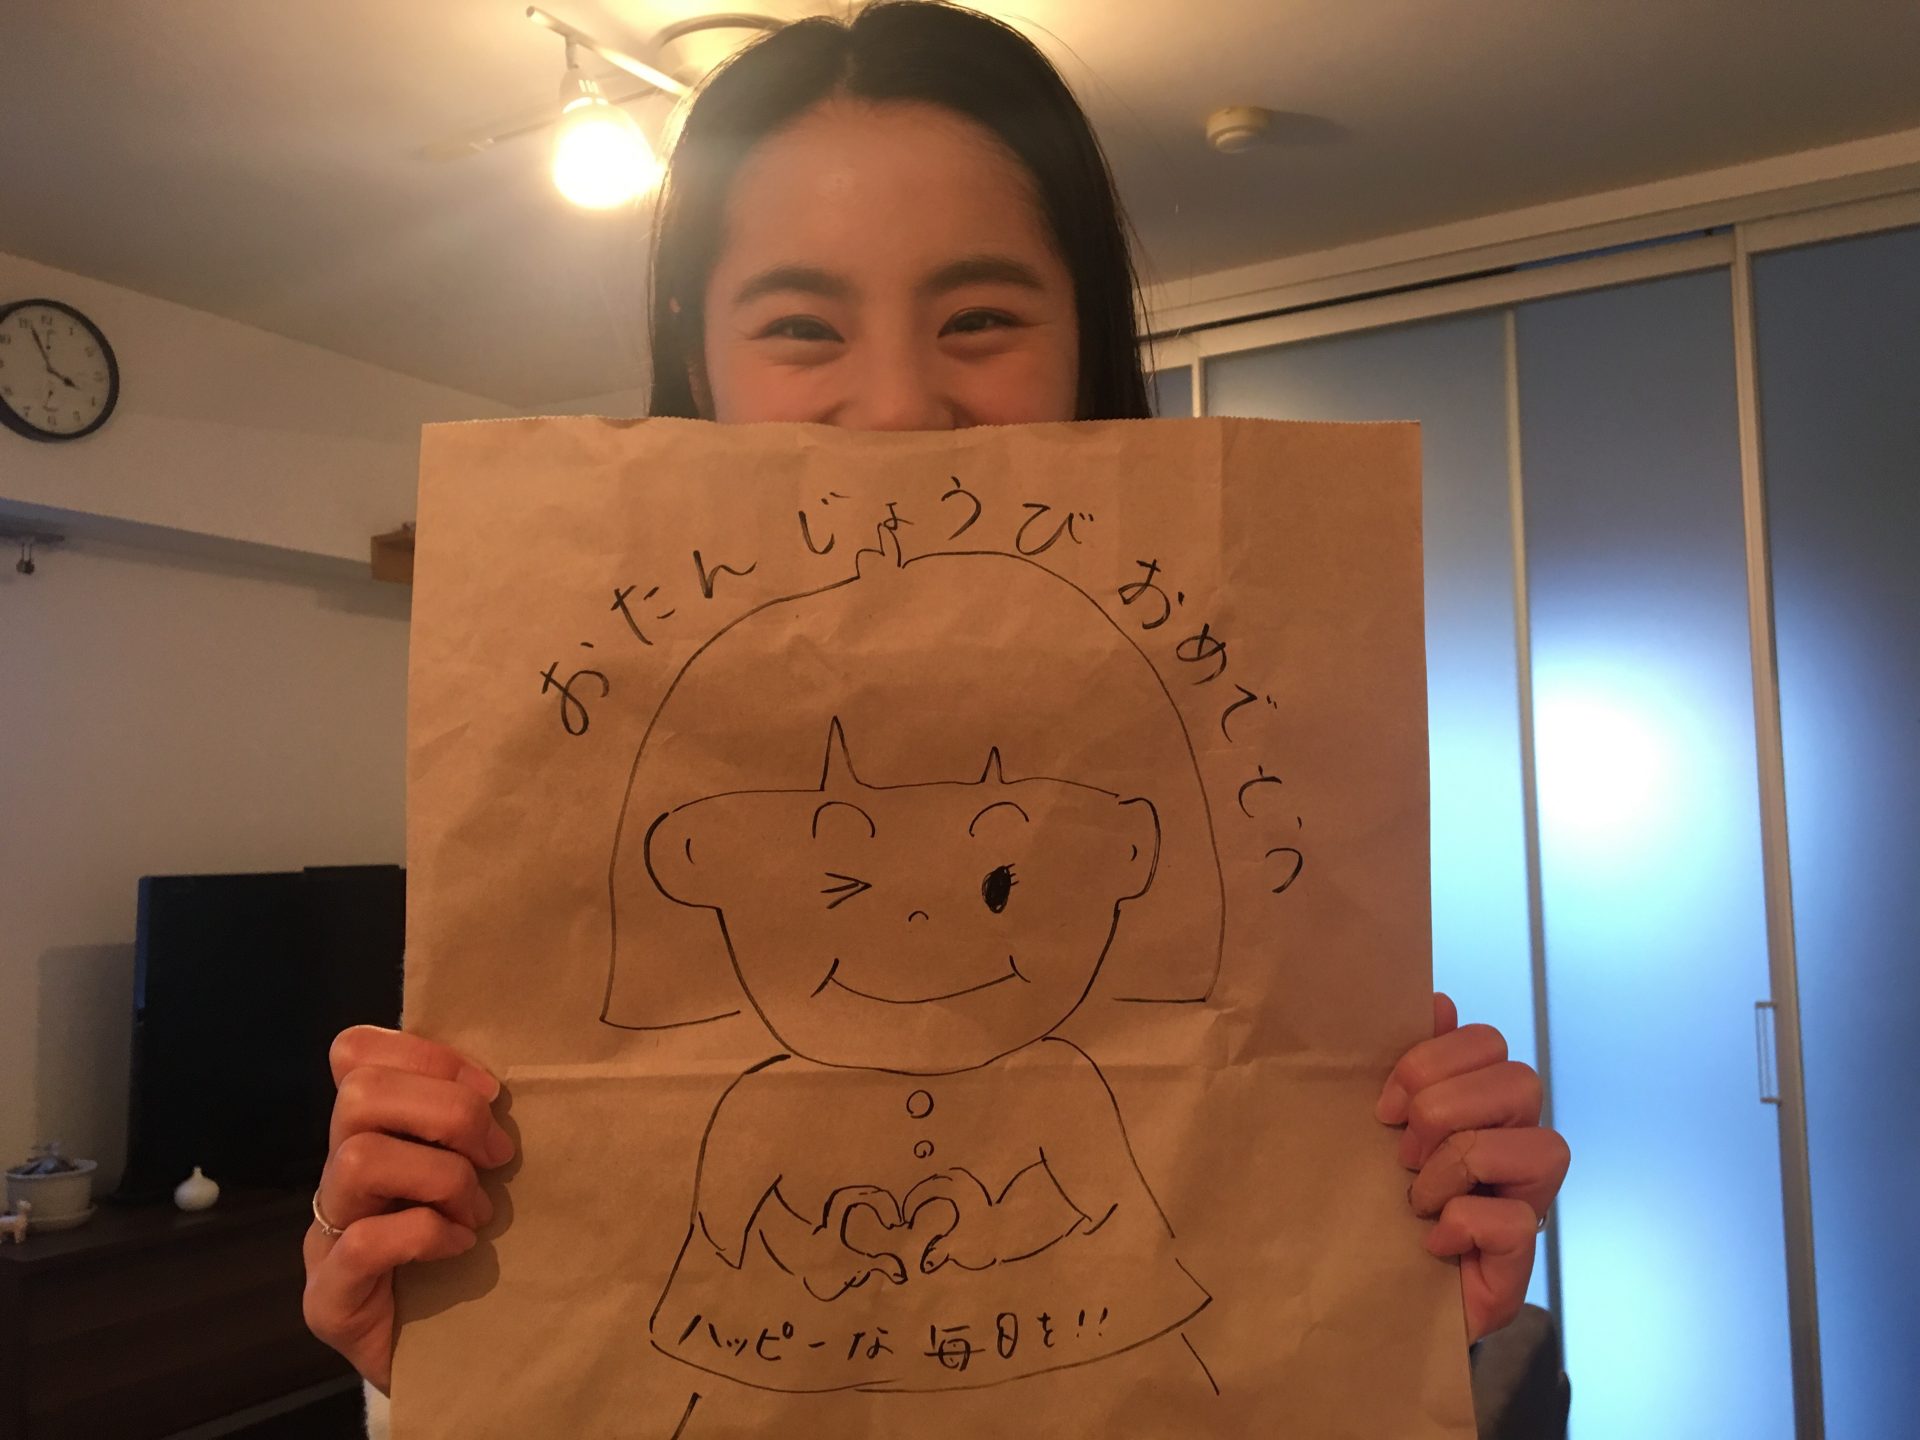 おたんじょうび おめでとう
ハッピーな毎日を!!